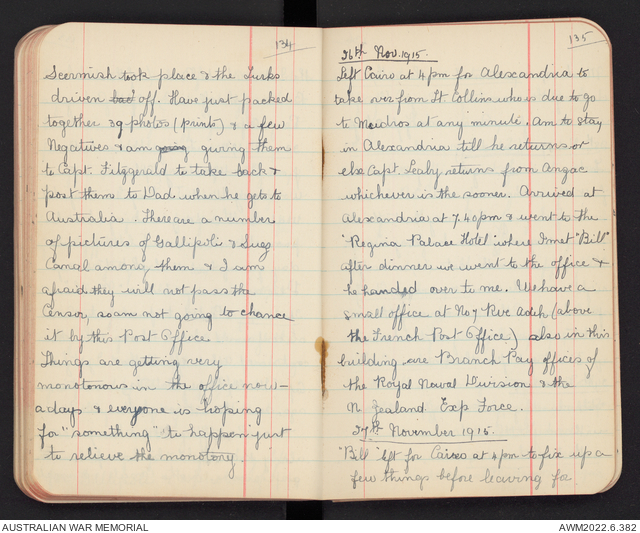 134
Scermish took place & the Turks
driven bac off. Have just packed
together 39 photos (prints) & a few
Negatives & am going giving them
to Capt. Fitzgerald to take back &
post them to Dad when he gets to
Australia. There are a number
of pictures of Gallipoli & Suez
Canal among them & I am
afraid they will not pass the
Censor, so am not going to chance
it by this Post Office
Things are getting very
monotonous in the office now-
adays & everyone is hoping
for "something" to happen just
to relieve the monotony.
135
26th Nov. 1915.
Left Cairo at 4 pm for Alexandria to
take over from Lt Collins who is due to go
to Mudros at any minute. Am to stay
in Alexandria till he returns or
else Capt. Leahy returns from Anzac
whichever is the sooner. Arrived at
Alexandria at 7.40 pm & went to the
"Regina Palace Hotel" where I met "Bill"
after dinner we went to the office &
he handed over to me. We have a
small office at No 7 Rue Adib (above
the French Post Office) also in this
building are Branch Pay offices of
the Royal Naval Division & the
N Zealand Exp Force.
27th November 1915.
"Bill" left for Cairo at 4 pm to fix up a
few things before leaving for
AUSTRALIAN WAR MEMORIAL
AWM2022.6.382